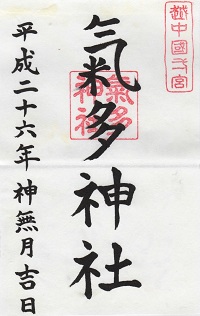 越中國一宮
氣多神社
氣多神社
平成二十六年神無月吉日